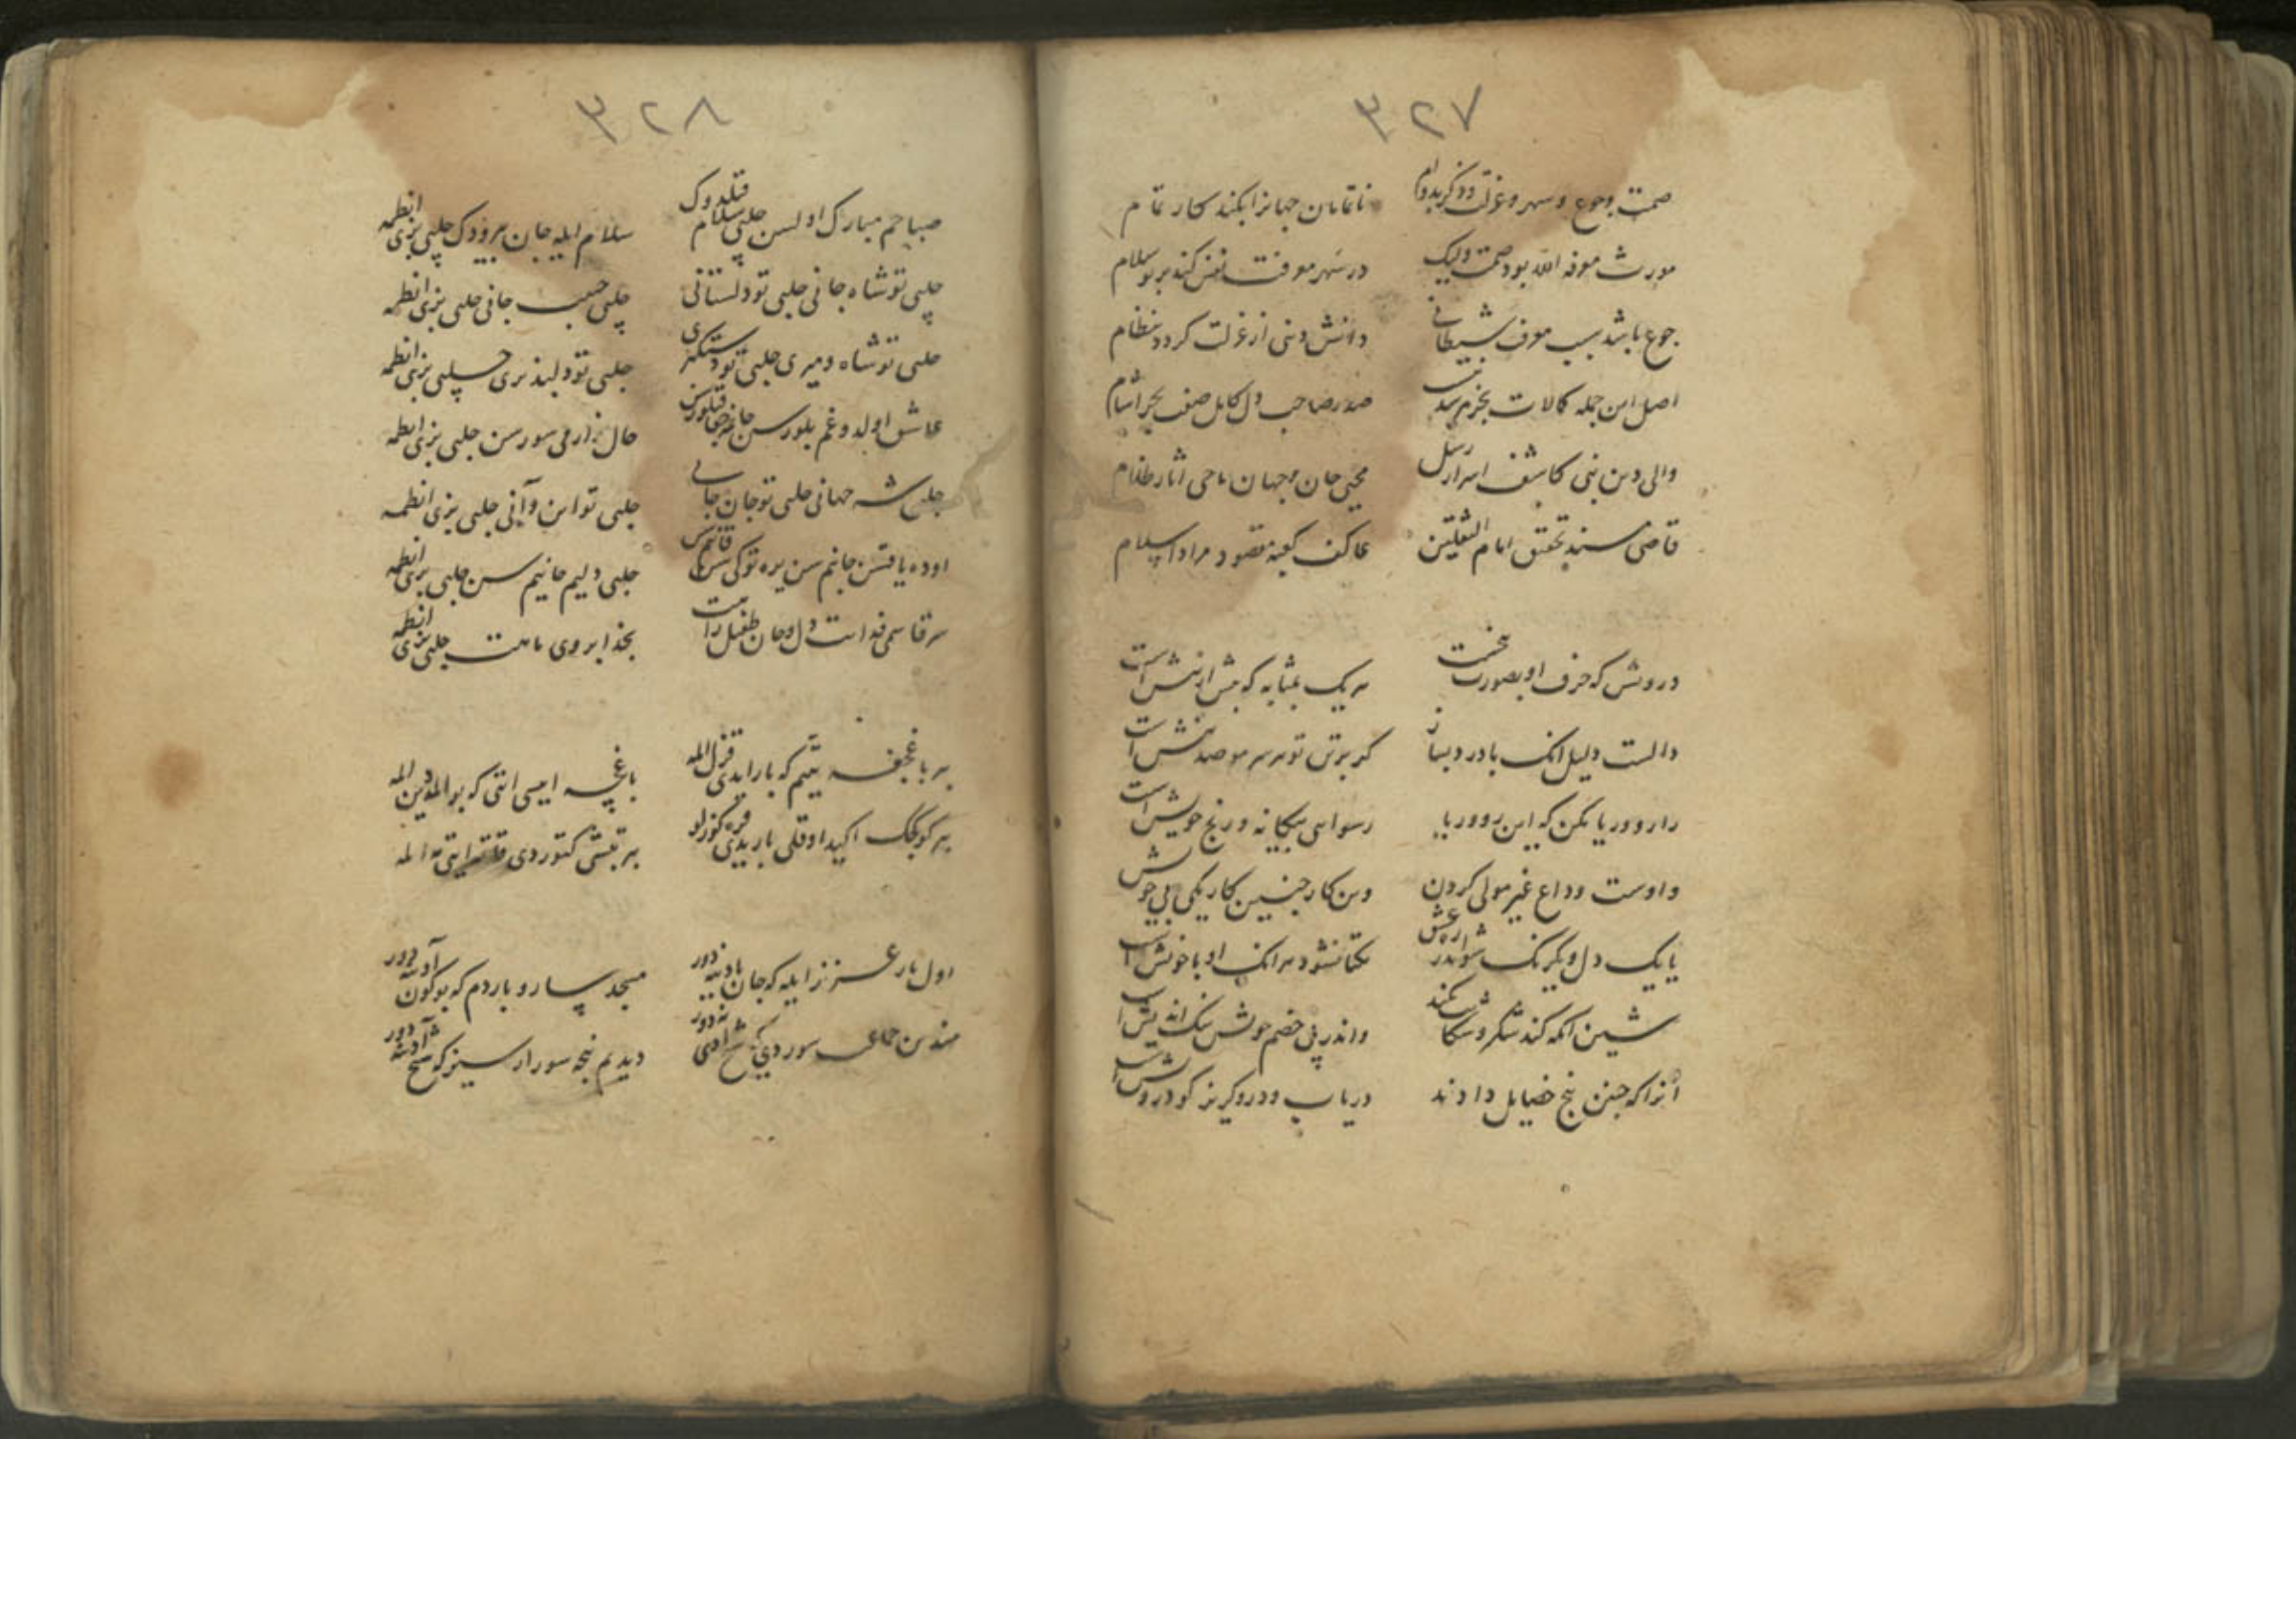 ٣٢٧
صمت وجوع و سهر و عزلت و ذکر بدوام
ناتمامان جهانرا بکند کار تمام
مورث معرفة الله بود صمت ولیک
در سهر معرفت نفس کند بر تو سلام
جوع باشد سبب معرف شیطانی
دانش دنیی از عزلت کردد بنظام
اصل این جمله کمالات بجز مرشد نیست
صدر صاحب دل کامل صفت بحر آشام
والی دین نبی کاشف اسرار رسل
محیی جان و جهان ماحی آثار ظلام
قاضی مسند تحقیق امام الثقلین
عاکف کعبه مقصود مراد اسلام
درویش که حرف او بصورت پنجست
هریک بمثابه که بیش از بیش است
دالست دلیل آنک با درد بساز
کر بر تن تو هر سر مو صد نیش است
را رو و ریا مکن که این روو ریا
رسوایی بیکانه و رنج خویش است
واوست وداع غیر مولی کردن
وین کار چنین کار یکی بی خویش
یا یک دل و یکرنک شو اندر ره عشق
یکتا نشود هر انک او با خویش است
شین آنکه کند شکر و شکایت نکند
واندر پی خصم خویش نیک اندیش است
آنرا که چنین پنج خصایل دادند
دریاب و درو کریز کو درویش است
٣٢٨
صباحم مبارک اولسن چلبی سلام قیلدوک
سلام ایله جان بیردوک چلبی بزی انطمه
چلبی تو شاه جانی چلبی تو دلستانی
چلبی حبیب جانی چلبی بزی انطمه
چلبی تو شاه و میری چلبی تو دستکیری
چلبی تو دلپذیری چلبی بزی انطمه
عاشق اولدوغم بلورسن جانمه جفا قیلورسن
حال زارمی سورسن چلبی بزی انطمه
چلبی شه جهانی چلبی تو جان جانی
چلبی تو این و آنی چلبی بزی انطمه
اوده یاقتن جانم سن یره توکی سن قانم سن
چلبی دلیم جانیم سن چلبی بزی انطمه
سر قاسمی فدایت دل و جان طفیل رایت
بخدا بروی ماهت چلبی بزی انطمه
بر باغچغه یتیم که بار ایدی قزل المه
باغچه ایسی ایتی که بو المه دین المه
بر کوچک اکیدا وقلی بار یدی قره کوزلو
بر تبش کتوردی ایتی به المه
اول یار عزیز ایله که جان بادیه دور
مسجد سارو باردم که بو کون آدینه دور
مندین جماعت سوردی که شیخ آدی نه دور
دیدیم نیجه سورارسیز که شیخ آدینه دور